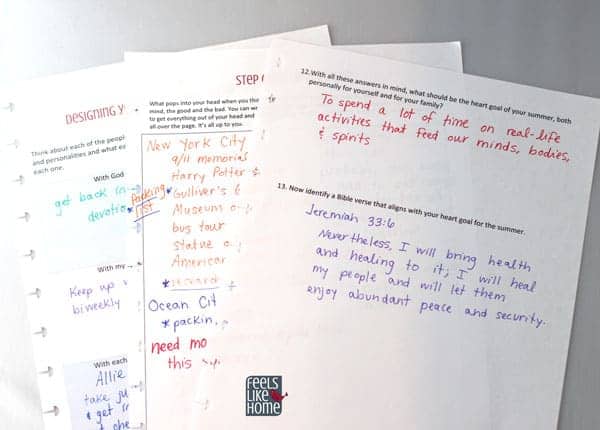 DESIGNING Y
Think about each of the peopl
and personalities and what
each one.
With God
get back in
devotio
With my
Keep up
biweekly
With each
Allie
take
& get
& che
STEP
What pops into your head when you
mind, the good and the bad. You can
to get everything out of your head and
all over the page. It's all up to you.
New York City
9/11 memorial
Harry Potter &
packing list
Gulliver's
Museum o
bus tour
Statue o
American
*research
Ocean Cit
*packin
need mo
this
12. With all these answers in mind, what should be the heart goal of your summer, both
personally for yourself and for your family?
To spend a lot of time on real-life
activities that feed our minds, bodies,
& spirits
13. Now identify a Bible verse that aligns with your heart goal for the summer.
Jeremiah 33:6
Nevertheless, I will bring health
and healing to it; I will heal
my people and will let them
enjoy abundant peace and security.
FEELS
LIKE
HOME